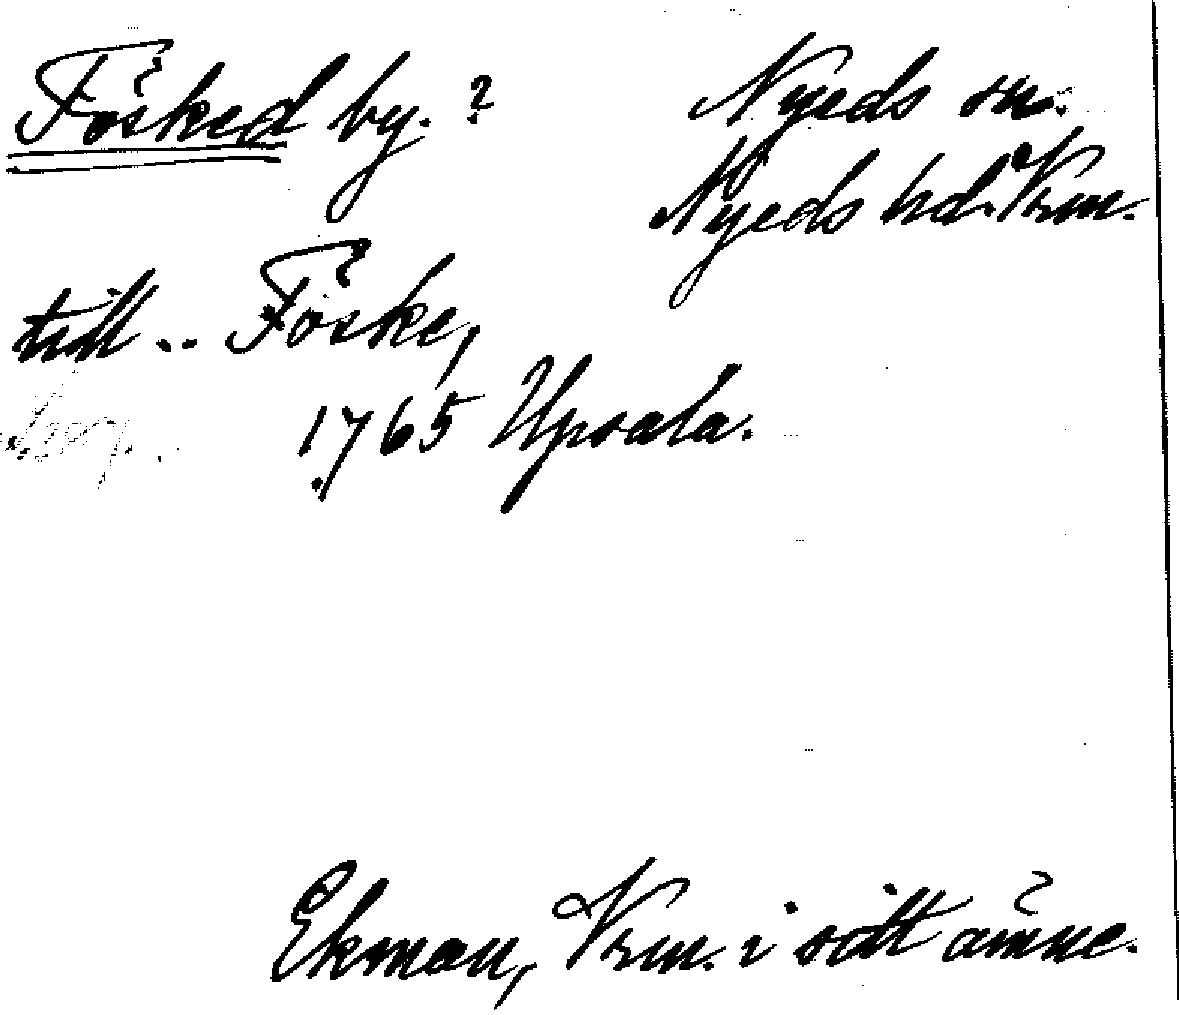 Fösked by. ?
Nyeds sn.
Nyeds hd. Vrm.
till .. Föske,
1765 Upsala.
Ekman, Vrm. i sitt ämne.